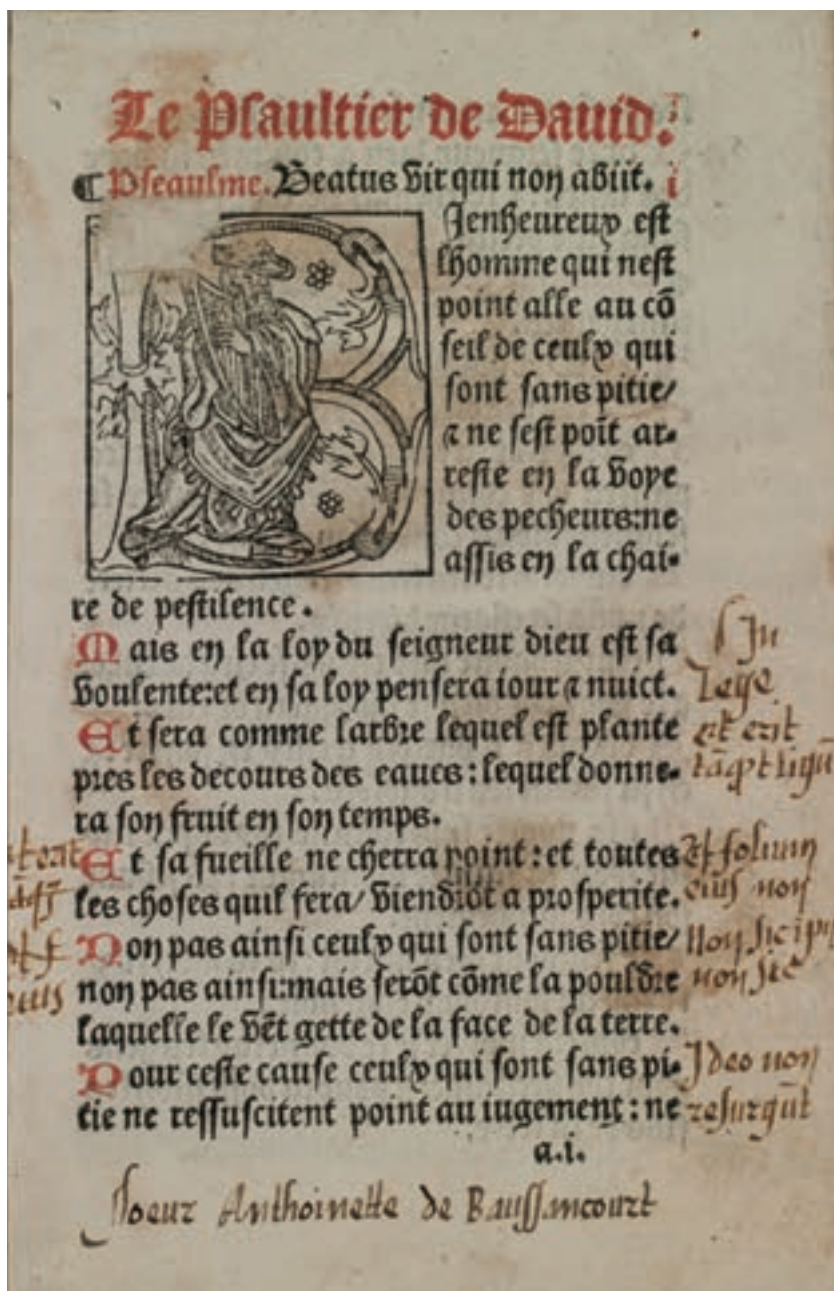 Le Psaultier de Dauid. i
¶ Pseausme. Beatus vir qui non abiit. i
Jenheureux est
lhomme qui nest
point alle au cō
seil de ceulx qui
sont sans pitie/
⁊ ne sest poīt ar-
reste en la voye
des pecheurs:ne
assis en la chai-
re de pestilence.
Mais en la loy du seigneur dieu est sa
voulente:et en sa loy pensera iour ⁊ nuict.
Et sera comme larbre lequel est plante
pres les decours des eaues: lequel donne-
ra son fruit en son temps.
Et sa fueille ne cherra point: et toutes
les choses quil fera/ viendrōt a prosperite.
Non pas ainsi ceulx qui sont sans pitie/
non pas ainsi:mais serōt cōme la pouldre
laquelle le vēt gette de la face de la terre.
Pour ceste cause ceulx qui sont sans pi-
tie ne ressuscitent point au iugement: ne
a.i.
In
Lege
et erit
lignū
Et folium
eius non
Non sic ipii
non sic
Ideo non
resurgūt
Soeur Anthoinette de Baussancourt